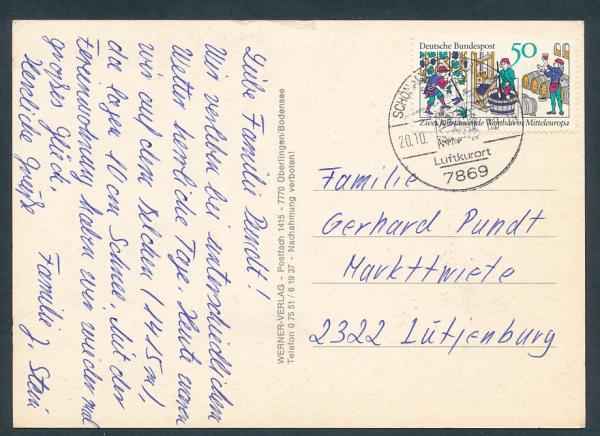 Liebe Familie Pundt!
Wir verleben bei unterschiedlichem
Wetter herrliche Tage. Heute waren
wir auf dem Belchen (1415m)
da lagen 10 cm Schnee. Mit der
Ferienwohnung haben wir wieder mal
großes Glück.
Herzliche Grüße
Familie J. Stein
WERNER-VERLAG - Postfach 1415 - 7770 Überlingen/Bodensee
Telefon 0 75 51 / 6 19 37 - Nachahmung verboten!
Deutsche Bundespost 50
Zwei Jahrtausende Weinbau in Mitteleuropa
20.10.
Luftkurort
7869
Familie
Gerhard Pundt
Markttwiete
2322 Lütjenburg